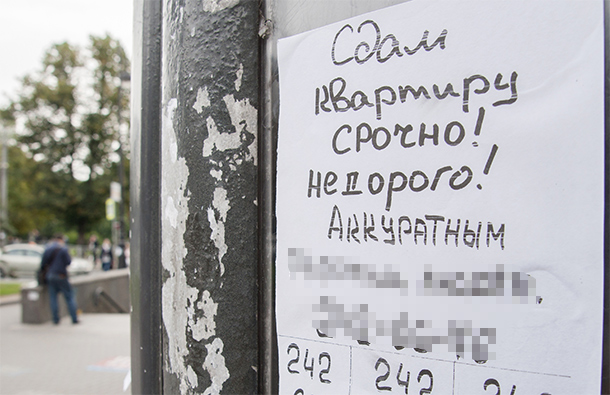 Сдам
квартиру
срочно!
недорого!
Аккуратным
242 242 242